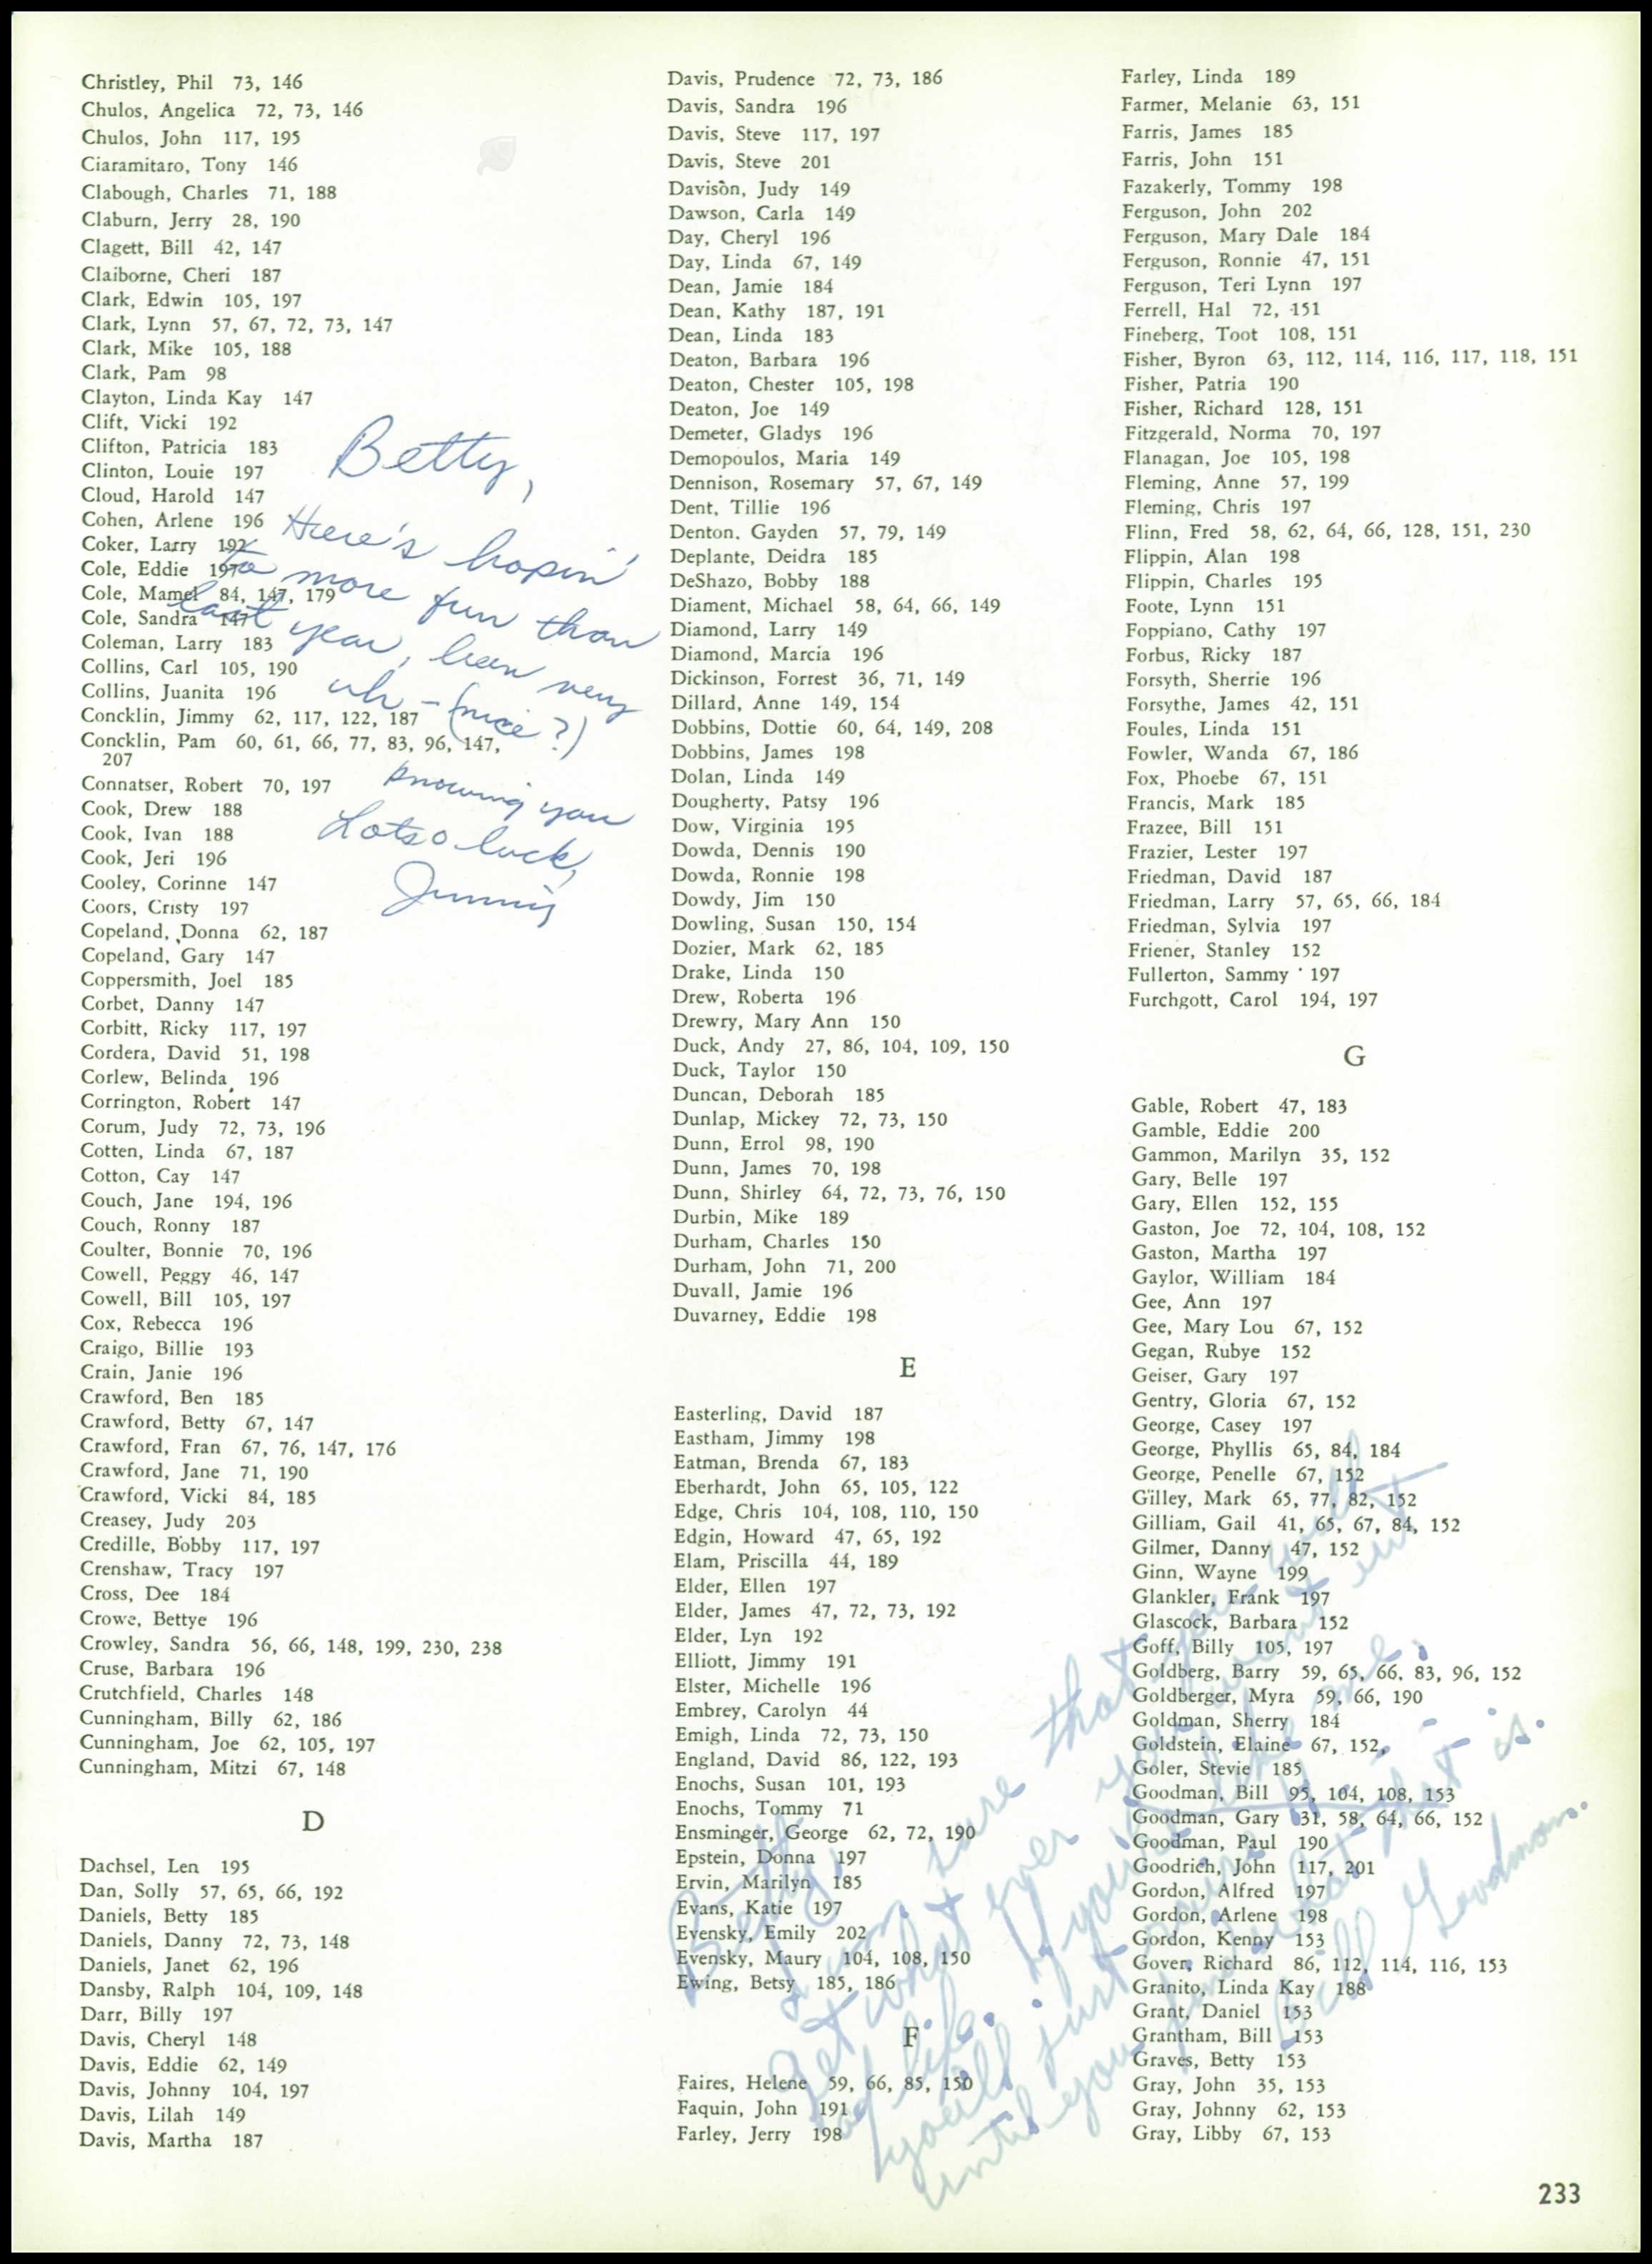 Christley, Phil 73, 146
Chulos, Angelica 72, 73, 146
Chulos, John 117, 195
Ciaramitaro, Tony 146
Clabough, Charles 71, 188
Claburn, Jerry 28, 190
Clagett, Bill 42, 147
Claiborne, Cheri 187
Clark, Edwin 105, 197
Clark, Lynn 57, 67, 72, 73, 147
Clark, Mike 105, 188
Clark, Pam 98
Clayton, Linda Kay 147
Clift, Vicki 192
Clifton, Patricia 183
Clinton, Louie 197
Cloud, Harold 147
Cohen, Arlene 196
Coker, Larry 192
Cole, Eddie 197
Cole, Mamel 84, 147, 179
Cole, Sandra 147
Coleman, Larry 183
Collins, Carl 105, 190
Collins, Juanita 196
Concklin, Jimmy 62, 117, 122, 187
Concklin, Pam 60, 61, 66, 77, 83, 96, 147,
207
Connatser, Robert 70, 197
Cook, Drew 188
Cook, Ivan 188
Cook, Jeri 196
Cooley, Corinne 147
Coors, Cristy 197
Copeland, Donna 62, 187
Copeland, Gary 147
Coppersmith, Joel 185
Corbet, Danny 147
Corbitt, Ricky 117, 197
Cordera, David 51, 198
Corlew, Belinda 196
Corrington, Robert 147
Corum, Judy 72, 73, 196
Cotten, Linda 67, 187
Cotton, Cay 147
Couch, Jane 194, 196
Couch, Ronny 187
Coulter, Bonnie 70, 196
Cowell, Peggy 46, 147
Cowell, Bill 105, 197
Cox, Rebecca 196
Craigo, Billie 193
Crain, Janie 196
Crawford, Ben 185
Crawford, Betty 67, 147
Crawford, Fran 67, 76, 147, 176
Crawford, Jane 71, 190
Crawford, Vicki 84, 185
Creasey, Judy 203
Credille, Bobby 117, 197
Crenshaw, Tracy 197
Cross, Dee 184
Crowe, Bettye 196
Crowley, Sandra 56, 66, 148, 199, 230, 238
Cruse, Barbara 196
Crutchfield, Charles 148
Cunningham, Billy 62, 186
Cunningham, Joe 62, 105, 197
Cunningham, Mitzi 67, 148
D
Dachsel, Len 195
Dan, Solly 57, 65, 66, 192
Daniels, Betty 185
Daniels, Danny 72, 73, 148
Daniels, Janet 62, 196
Dansby, Ralph 104, 109, 148
Darr, Billy 197
Davis, Cheryl 148
Davis, Eddie 62, 149
Davis, Johnny 104, 197
Davis, Lilah 149
Davis, Martha 187
Betty,
Here's hopin'
to more fun than
last year, been very
uh - (nice?)
knowing you
Lotso luck,
Jimmy
Davis, Prudence 72, 73, 186
Davis, Sandra 196
Davis, Steve 117, 197
Davis, Steve 201
Davison, Judy 149
Dawson, Carla 149
Day, Cheryl 196
Day, Linda 67, 149
Dean, Jamie 184
Dean, Kathy 187, 191
Dean, Linda 183
Deaton, Barbara 196
Deaton, Chester 105, 198
Deaton, Joe 149
Demeter, Gladys 196
Demopoulos, Maria 149
Dennison, Rosemary 57, 67, 149
Dent, Tillie 196
Denton, Gayden 57, 79, 149
Deplante, Deidra 185
DeShazo, Bobby 188
Diament, Michael 58, 64, 66, 149
Diamond, Larry 149
Diamond, Marcia 196
Dickinson, Forrest 36, 71, 149
Dillard, Anne 149, 154
Dobbins, Dottie 60, 64, 149, 208
Dobbins, James 198
Dolan, Linda 149
Dougherty, Patsy 196
Dow, Virginia 195
Dowda, Dennis 190
Dowda, Ronnie 198
Dowdy, Jim 150
Dowling, Susan 150, 154
Dozier, Mark 62, 185
Drake, Linda 150
Drew, Roberta 196
Drewry, Mary Ann 150
Duck, Andy 27, 86, 104, 109, 150
Duck, Taylor 150
Duncan, Deborah 185
Dunlap, Mickey 72, 73, 150
Dunn, Errol 98, 190
Dunn, James 70, 198
Dunn, Shirley 64, 72, 73, 76, 150
Durbin, Mike 189
Durham, Charles 150
Durham, John 71, 200
Duvall, Jamie 196
Duvarney, Eddie 198
E
Easterling, David 187
Eastham, Jimmy 198
Eatman, Brenda 67, 183
Eberhardt, John 65, 105, 122
Edge, Chris 104, 108, 110, 150
Edgin, Howard 47, 65, 192
Elam, Priscilla 44, 189
Elder, Ellen 197
Elder, James 47, 72, 73, 192
Elder, Lyn 192
Elliott, Jimmy 191
Elster, Michelle 196
Embrey, Carolyn 44
Emigh, Linda 72, 73, 150
England, David 86, 122, 193
Enochs, Susan 101, 193
Enochs, Tommy 71
Ensminger, George 62, 72, 190
Epstein, Donna 197
Ervin, Marilyn 185
Evans, Katie 197
Evensky, Emily 202
Evensky, Maury 104, 108, 150
Ewing, Betsy 185, 186
F
Faires, Helene 59, 66, 85, 150
Faquin, John 191
Farley, Jerry 198
Farley, Linda 189
Farmer, Melanie 63, 151
Farris, James 185
Farris, John 151
Fazakerly, Tommy 198
Ferguson, John 202
Ferguson, Mary Dale 184
Ferguson, Ronnie 47, 151
Ferguson, Teri Lynn 197
Ferrell, Hal 72, 151
Fineberg, Toot 108, 151
Fisher, Byron 63, 112, 114, 116, 117, 118, 151
Fisher, Patria 190
Fisher, Richard 128, 151
Fitzgerald, Norma 70, 197
Flanagan, Joe 105, 198
Fleming, Anne 57, 199
Fleming, Chris 197
Flinn, Fred 58, 62, 64, 66, 128, 151, 230
Flippin, Alan 198
Flippin, Charles 195
Foote, Lynn 151
Foppiano, Cathy 197
Forbus, Ricky 187
Forsyth, Sherrie 196
Forsythe, James 42, 151
Foules, Linda 151
Fowler, Wanda 67, 186
Fox, Phoebe 67, 151
Francis, Mark 185
Frazee, Bill 151
Frazier, Lester 197
Friedman, David 187
Friedman, Larry 57, 65, 66, 184
Friedman, Sylvia 197
Friener, Stanley 152
Fullerton, Sammy 197
Furchgott, Carol 194, 197
G
Gable, Robert 47, 183
Gamble, Eddie 200
Gammon, Marilyn 35, 152
Gary, Belle 197
Gary, Ellen 152, 155
Gaston, Joe 72, 104, 108, 152
Gaston, Martha 197
Gaylor, William 184
Gee, Ann 197
Gee, Mary Lou 67, 152
Gegan, Rubye 152
Geiser, Gary 197
Gentry, Gloria 67, 152
George, Casey 197
George, Phyllis 65, 84, 184
George, Penelle 67, 152
Gilley, Mark 65, 77, 82, 152
Gilliam, Gail 41, 65, 67, 84, 152
Gilmer, Danny 47, 152
Ginn, Wayne 199
Glankler, Frank 197
Glascock, Barbara 152
Goff, Billy 105, 197
Goldberg, Barry 59, 65, 66, 83, 96, 152
Goldberger, Myra 59, 66, 190
Goldman, Sherry 184
Goldstein, Elaine 67, 152
Goler, Stevie 185
Goodman, Bill 95, 104, 108, 153
Goodman, Gary 31, 58, 64, 66, 152
Goodman, Paul 190
Goodrich, John 117, 201
Gordon, Alfred 197
Gordon, Arlene 198
Gordon, Kenny 153
Gover, Richard 86, 112, 114, 116, 153
Granito, Linda Kay 188
Grant, Daniel 153
Grantham, Bill 153
Graves, Betty 153
Gray, John 35, 153
Gray, Johnny 62, 153
Gray, Libby 67, 153
Betty,
I am sure that you will
get what ever you want out
of life. If you're like me.
you'll just
until you find what that is.
Bill Goodman.
233